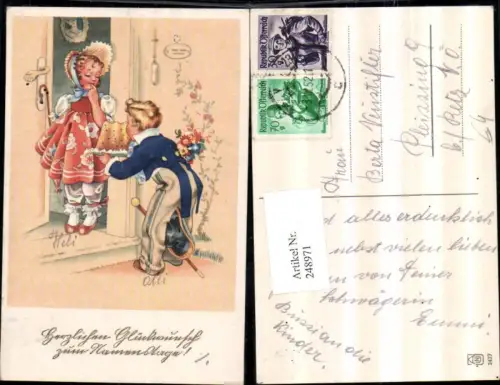 Heli
Otti
Herzlichen Glückwunsch
zum Namenstage!
Republik Österreich
Republik Österreich
70
Frau
Berta Neustifter
Pleissing 9
b/ Retz N.Ö.
64
Artikel Nr.
248971
alles erdenklich
nebst vielen lieben
von Deiner
Schwägerin
Emmi.
Bussi an die
Kinder.